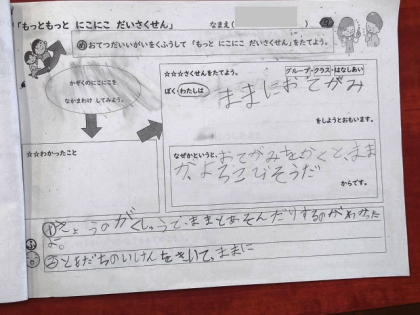 「もっともっと にこにこ だいさくせん」 なまえ(
め おてつだいいがいをくふうして「もっと にこにこ だいさくせん」をたてよう。
かぞくのにこにこを
なかまわけ してみよう。
☆☆わかったこと
☆☆☆さくせんをたてよう。
グループ・クラス・はなしあい
ぼく わたしは
ままにおてがみ
をしようとおもいます。
なぜかというと、おてがみをかくと、まま
が、よろこびそうだ
からです。
①きょうのがくしゅうで、ままとあそんだりするのがわかった
よ。
②ともだちのいけんをきいて、ままに